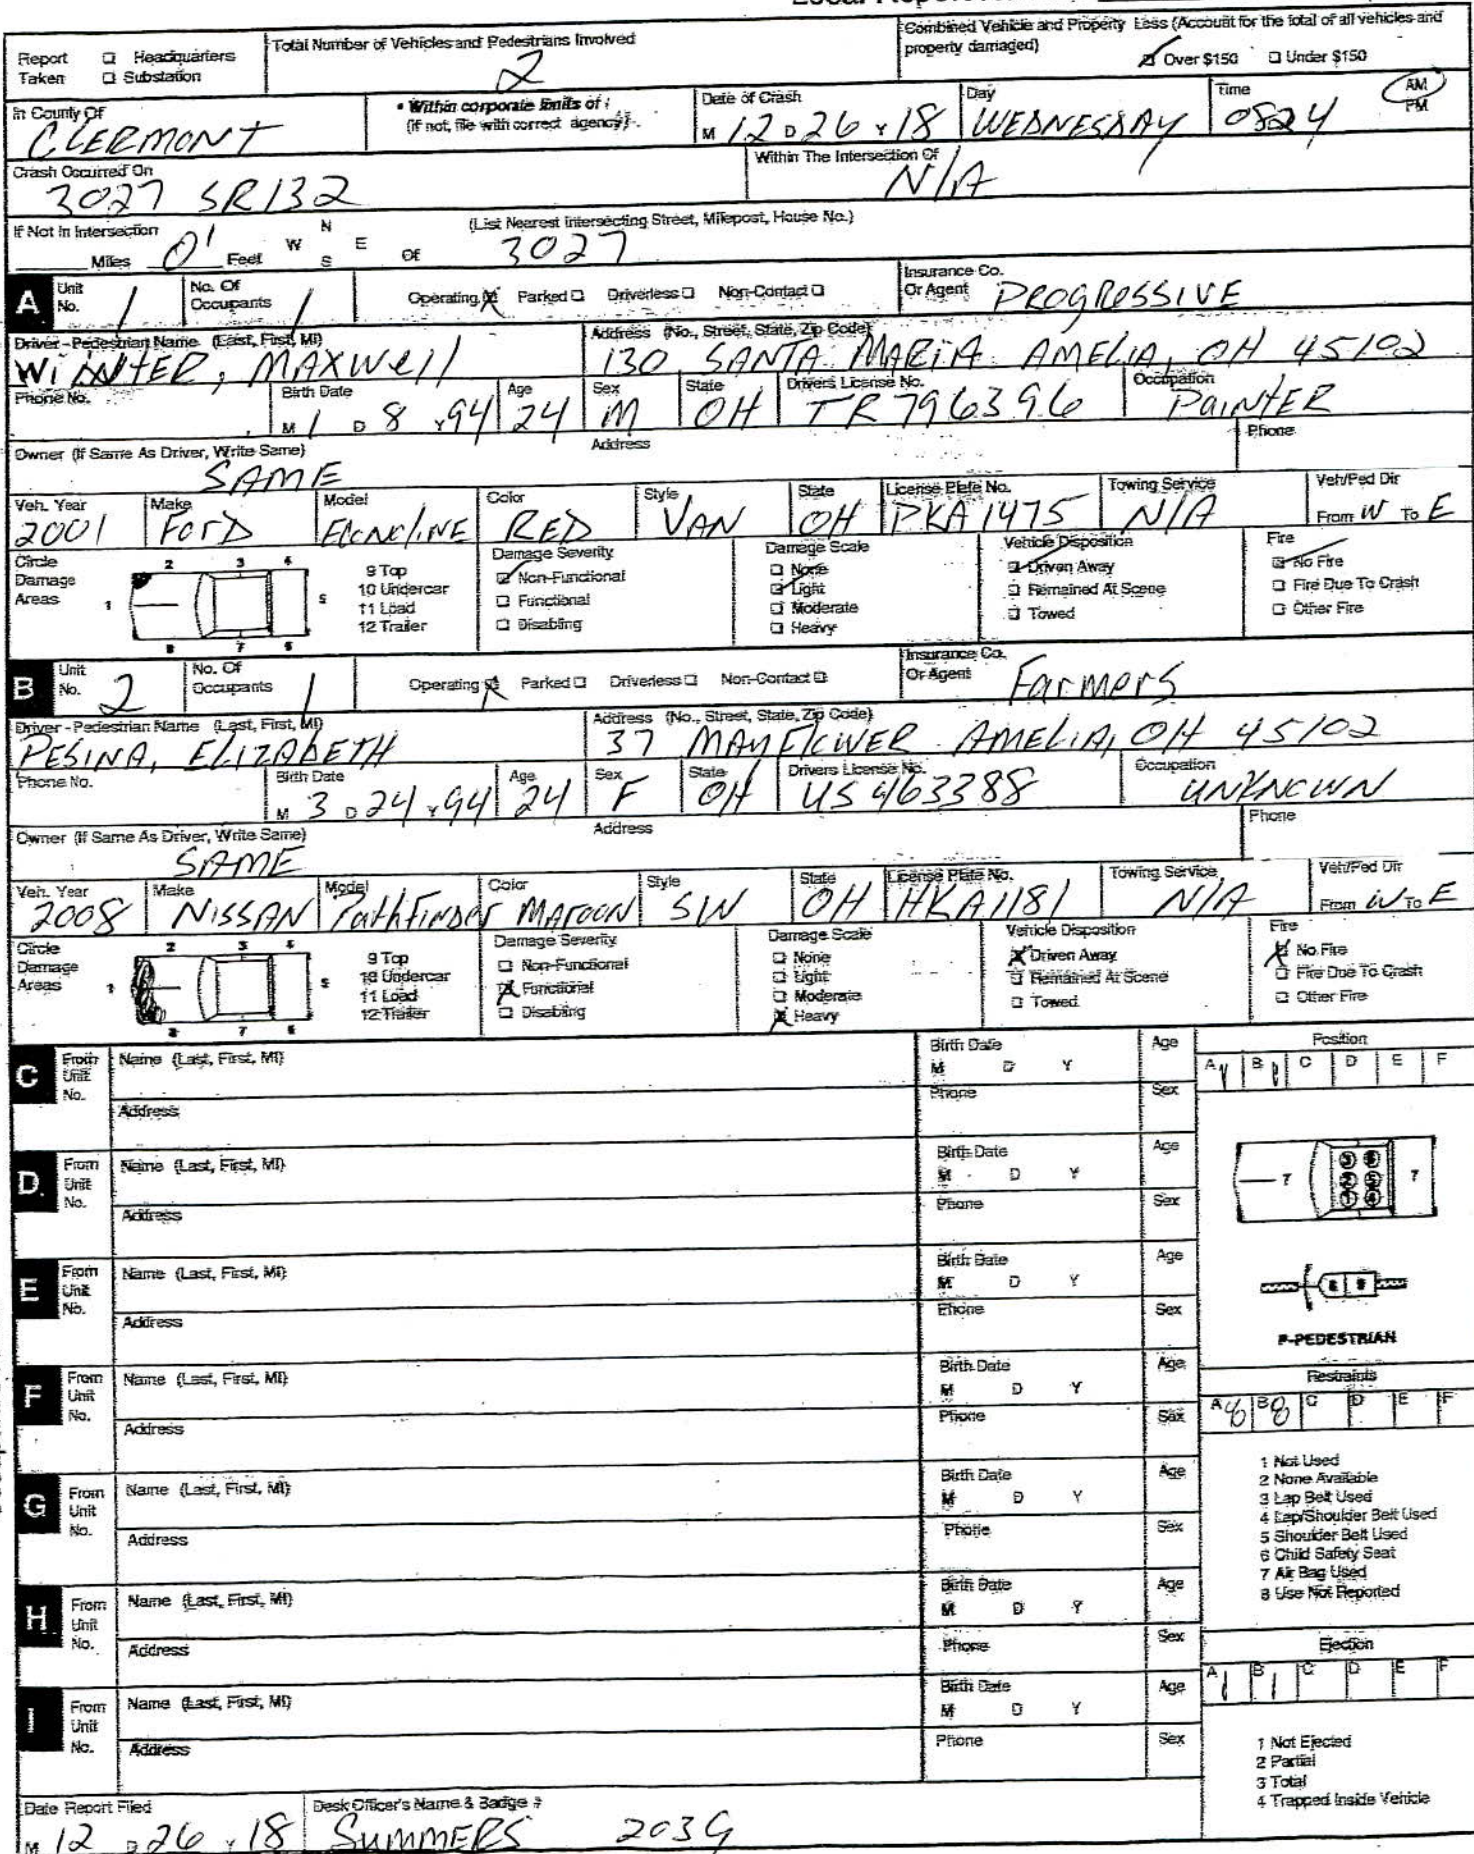 Combined Vehicle and Property Loss (Account for the total of all vehicles and
property damaged)
Report Taken ☐ Headquarters ☐ Substation
Total Number of Vehicles and Pedestrians Involved
2
☑ Over $150 ☐ Under $150
In County Of
CLERMONT
• Within corporate limits of :
(if not, file with correct agency) .
Date of Crash
M 12 D 26 Y 18
Day
WEDNESDAY
Time
0824
AM
PM
Crash Occurred On
3027 SR132
Within The Intersection Of
N/A
If Not In Intersection
Miles 0' Feet N W E S Of
(List Nearest Intersecting Street, Milepost, House No.)
3027
A Unit No. 1
No. Of Occupants 1
Operating ☒ Parked ☐ Driverless ☐ Non-Contact ☐
Insurance Co. Or Agent PROGRESSIVE
Driver - Pedestrian Name (Last, First, MI)
WINTER, MAXWell
Address (No., Street, State, Zip Code)
130 SANTA MARIA AMELIA, OH 45102
Phone No.
Birth Date
M 1 D 8 Y 94
Age
24
Sex
M
State
OH
Drivers License No.
TR796396
Occupation
PAINTER
Owner (If Same As Driver, Write Same)
SAME
Address
Phone
Veh. Year
2001
Make
ForD
Model
EcONOliNE
Color
RED
Style
VAN
State
OH
License Plate No.
PKA1475
Towing Service
N/A
Veh/Ped Dir
From W To E
Circle Damage Areas
1 2 3 4 5 6 7 8
9 Top
10 Undercar
11 Load
12 Trailer
Damage Severity
☑ Non-Functional
☐ Functional
☐ Disabling
Damage Scale
☐ None
☑ Light
☐ Moderate
☐ Heavy
Vehicle Disposition
☑ Driven Away
☐ Remained At Scene
☐ Towed
Fire
☑ No Fire
☐ Fire Due To Crash
☐ Other Fire
B Unit No. 2
No. Of Occupants 1
Operating ☒ Parked ☐ Driverless ☐ Non-Contact ☐
Insurance Co. Or Agent Farmers
Driver - Pedestrian Name (Last, First, MI)
PESINA, ELIZABETH
Address (No., Street, State, Zip Code)
37 MAYFLOWER AMELIA, OH 45102
Phone No.
Birth Date
M 3 D 24 Y 94
Age
24
Sex
F
State
OH
Drivers License No.
US463388
Occupation
UNKNOWN
Owner (If Same As Driver, Write Same)
SAME
Address
Phone
Veh. Year
2008
Make
NISSAN
Model
PathFinder
Color
MAROON
Style
SW
State
OH
License Plate No.
HKA1181
Towing Service
N/A
Veh/Ped Dir
From W To E
Circle Damage Areas
1 2 3 4 5 6 7 8
9 Top
10 Undercar
11 Load
12 Trailer
Damage Severity
☐ Non-Functional
☒ Functional
☐ Disabling
Damage Scale
☐ None
☐ Light
☐ Moderate
☒ Heavy
Vehicle Disposition
☒ Driven Away
☐ Remained At Scene
☐ Towed
Fire
☒ No Fire
☐ Fire Due To Crash
☐ Other Fire
C From Unit No.
Name (Last, First, MI)
Birth Date M D Y
Age
Address
Phone
Sex
Position
A 1 B 1 C D E F
D. From Unit No.
Name (Last, First, MI)
Birth Date M D Y
Age
Address
Phone
Sex
7 3 6 2 5 1 4 7
E From Unit No.
Name (Last, First, MI)
Birth Date M D Y
Age
Address
Phone
Sex
P-PEDESTRIAN
F From Unit No.
Name (Last, First, MI)
Birth Date M D Y
Age
Address
Phone
Sex
Restraints
A 8 B 8 C D E F
G From Unit No.
Name (Last, First, MI)
Birth Date M D Y
Age
Address
Phone
Sex
1 Not Used
2 None Available
3 Lap Belt Used
4 Lap/Shoulder Belt Used
5 Shoulder Belt Used
6 Child Safety Seat
7 Air Bag Used
8 Use Not Reported
H From Unit No.
Name (Last, First, MI)
Birth Date M D Y
Age
Address
Phone
Sex
Ejection
A 1 B 1 C D E F
I From Unit No.
Name (Last, First, MI)
Birth Date M D Y
Age
Address
Phone
Sex
1 Not Ejected
2 Partial
3 Total
4 Trapped Inside Vehicle
Date Report Filed
M 12 D 26 Y 18
Desk Officer's Name & Badge #
SUMMERS 203G